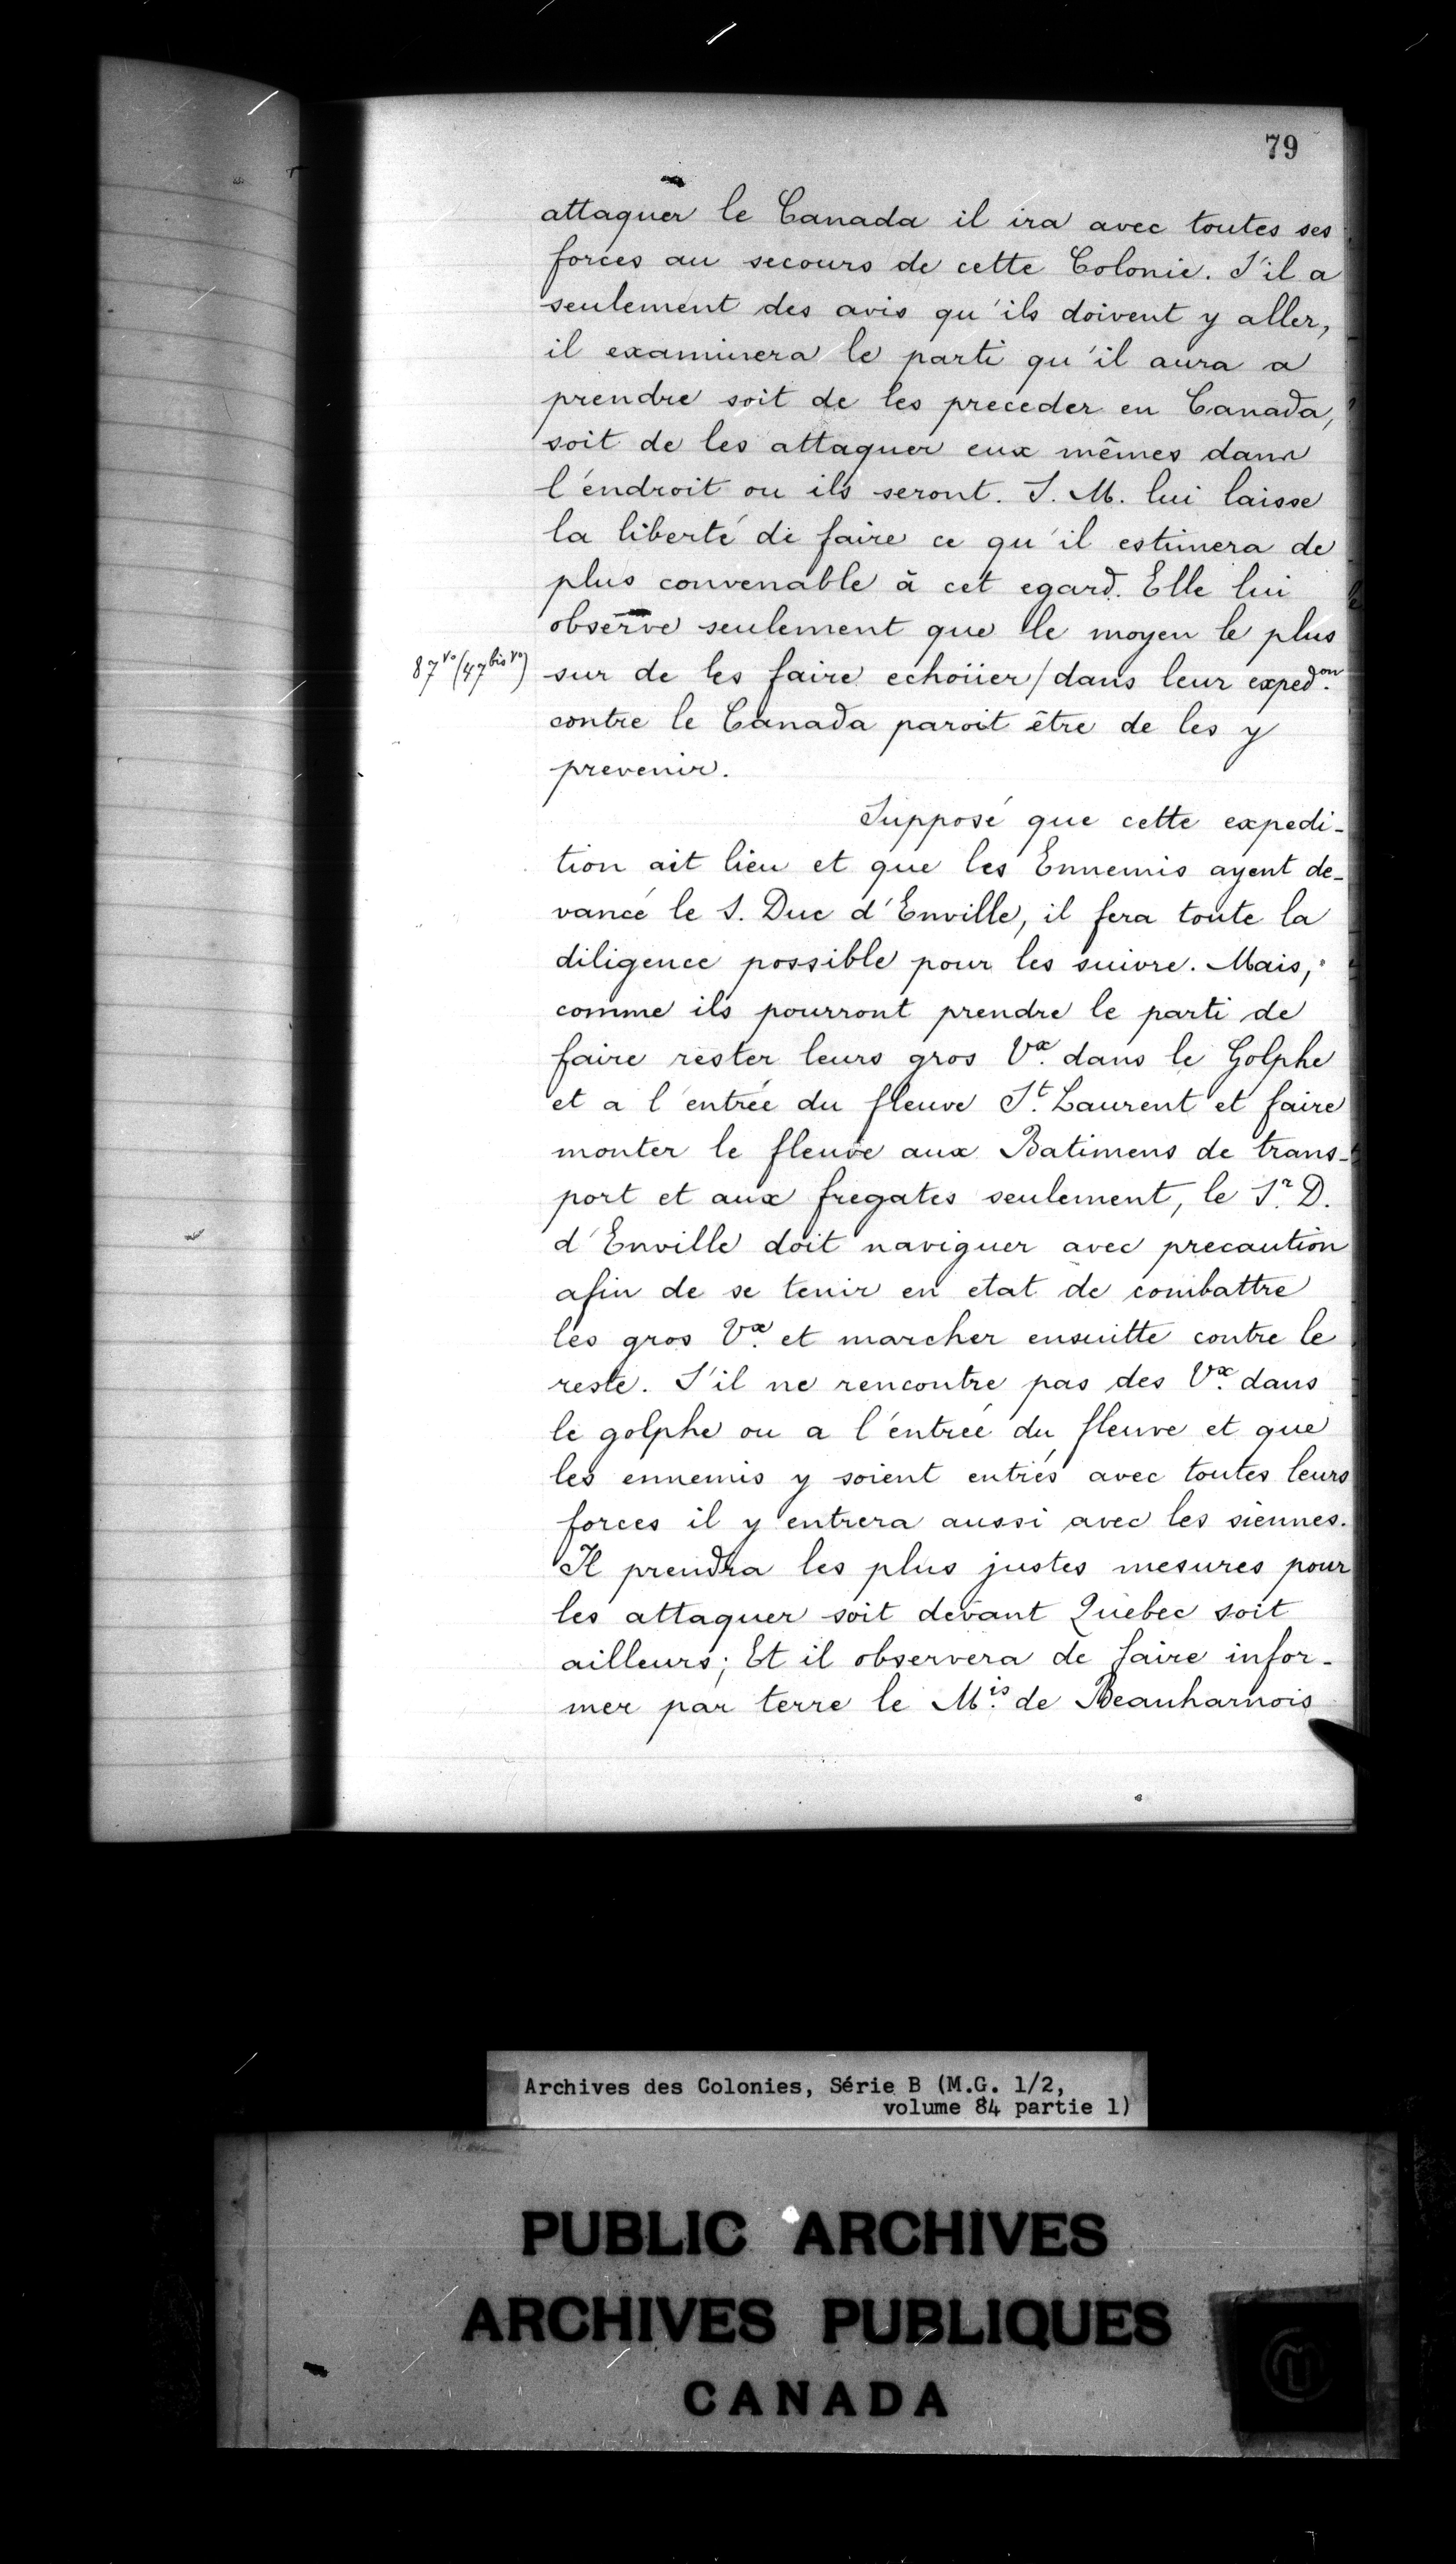 79
attaquer le Canada il ira avec toutes ses
forces au secours de cette Colonie. S'il a
seulement des avis qu'ils doivent y aller,
il examinera le parti qu'il aura a
prendre soit de les preceder en Canada,
soit de les attaquer eux mêmes dans
l'endroit ou ils seront. S. M. lui laisse
la liberté de faire ce qu'il estimera de
plus convenable à cet egard. Elle lui
observe seulement que le moyen le plus
87vo (47bis vo) sur de les faire echoüer / dans leur expedon.
contre le Canada paroit être de les y
prevenir.
Supposé que cette expedi-
tion ait lieu et que les Ennemis ayent de-
vancé le S. Duc d'Enville, il fera toute la
diligence possible pour les suivre. Mais,
comme ils pourront prendre le parti de
faire rester leurs gros Vx. dans le Golphe
et a l'entrée du fleuve St. Laurent et faire
monter le fleuve aux Batimens de trans-
port et aux fregates seulement, le Sr. D.
d'Enville doit naviguer avec precaution
afin de se tenir en etat de combattre
les gros Vx. et marcher ensuitte contre le
reste. S'il ne rencontre pas des Vx. dans
le golphe ou a l'entrée du fleuve et que
les ennemis y soient entrés avec toutes leurs
forces il y entrera aussi avec les siennes.
Il prendra les plus justes mesures pour
les attaquer soit devant Quebec soit
ailleurs; Et il observera de faire infor-
mer par terre le Mis. de Beauharnois
Archives des Colonies, Série B (M.G. 1/2,
volume 84 partie 1)
PUBLIC ARCHIVES
ARCHIVES PUBLIQUES
CANADA